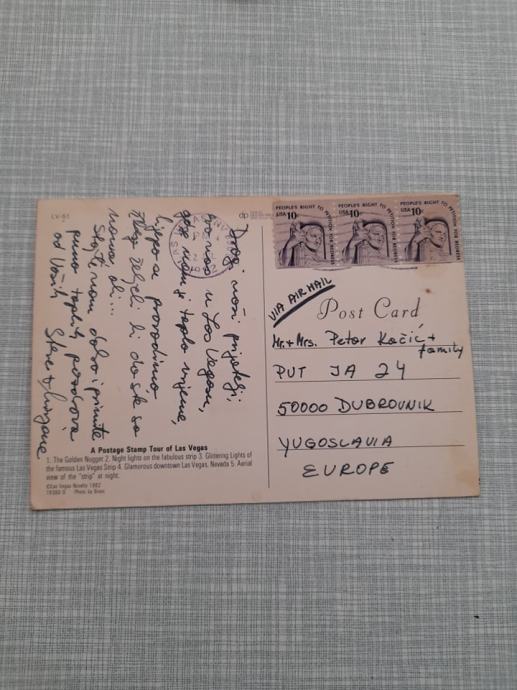 LV-61
dp
PEOPLE'S RIGHT TO PETITION FOR REDRESS
USA 10c
PEOPLE'S RIGHT TO PETITION FOR REDRESS
USA 10c
PEOPLE'S RIGHT TO PETITION FOR REDRESS
USA 10c
VIA AIR MAIL
Post Card
Mr. + Mrs. Petar Kačić +
family
PUT JA 24
50000 DUBROVNIK
YUGOSLAVIA
EUROPE
Dragi naši prijatelji,
evo nas u Las Vegasu,
gdje nam je toplo vrijeme,
lijepo se provodimo
željeli bi da ste sa
nama ali...
Stojte nam dobro i primite
puno toplih pozdrava
od Vaših Stere
A Postage Stamp Tour of Las Vegas
1. The Golden Nugget 2. Night lights on the fabulous strip 3. Glittering Lights of
the famous Las Vegas Strip 4. Glamorous downtown Las Vegas, Nevada 5. Aerial
view of the "strip" at night.
©Las Vegas Novelty 1982
Photo by